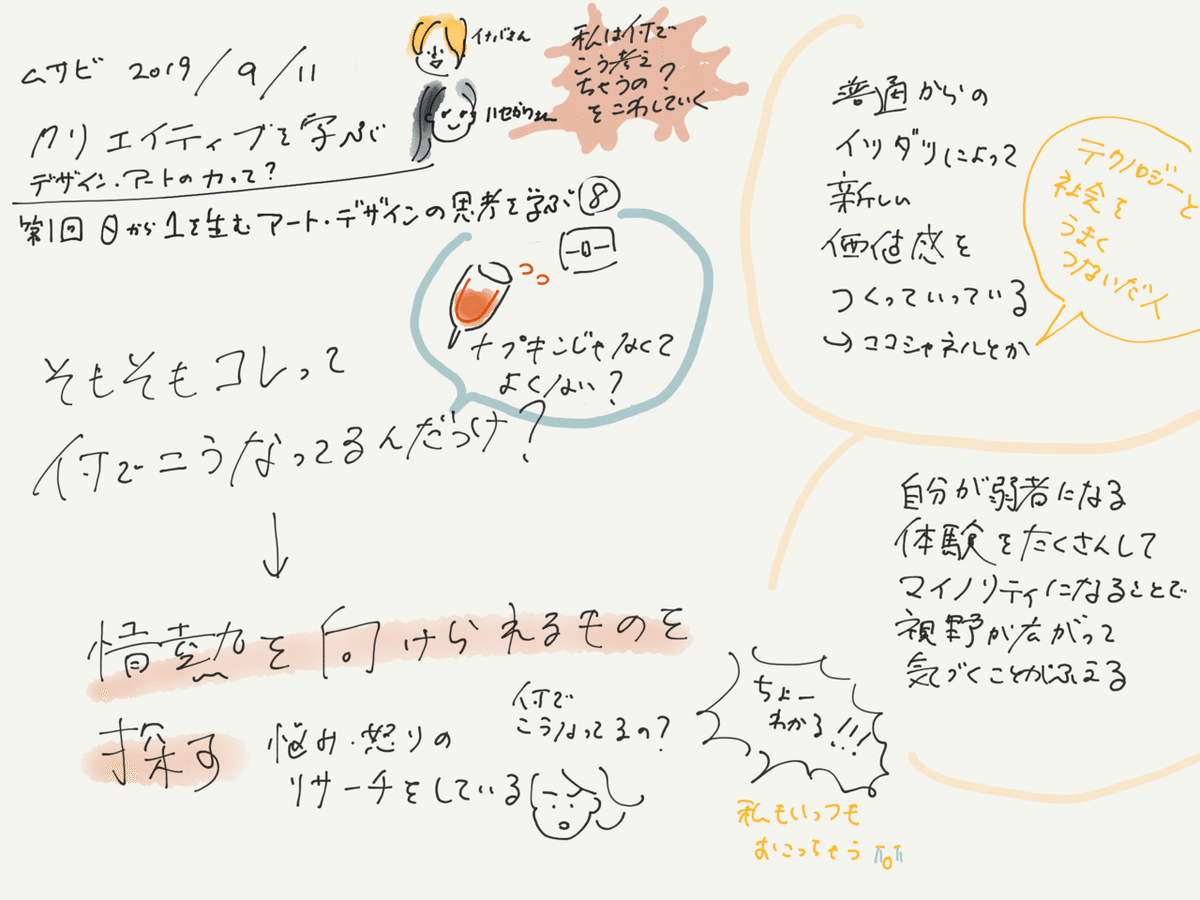 ムサビ 2019/9/11
クリエイティブを学ぶ
デザイン・アートの力って?
第1回 0から1を生むアート・デザインの思考を学ぶ⑧
イナバさん
ハセガワさん
私は何で
こう考え
ちゃうの?
をこわしていく
ナプキンじゃなくて
よくない?
そもそもコレって
何でこうなってるんだっけ?
↓
情熱を向けられるものを
探す
悩み・怒りの
リサーチをしている
何で
こうなってるの?
ちょー
わかる!!!
私もいっつも
おこっちゃう
普通からの
イツダツによって
新しい
価値感を
つくっていっている
→ココシャネルとか
テクノロジーと
社会を
うまく
つないだ人
自分が弱者になる
体験をたくさんして
マイノリティになることで
視野が広がって
気づくことがふえる